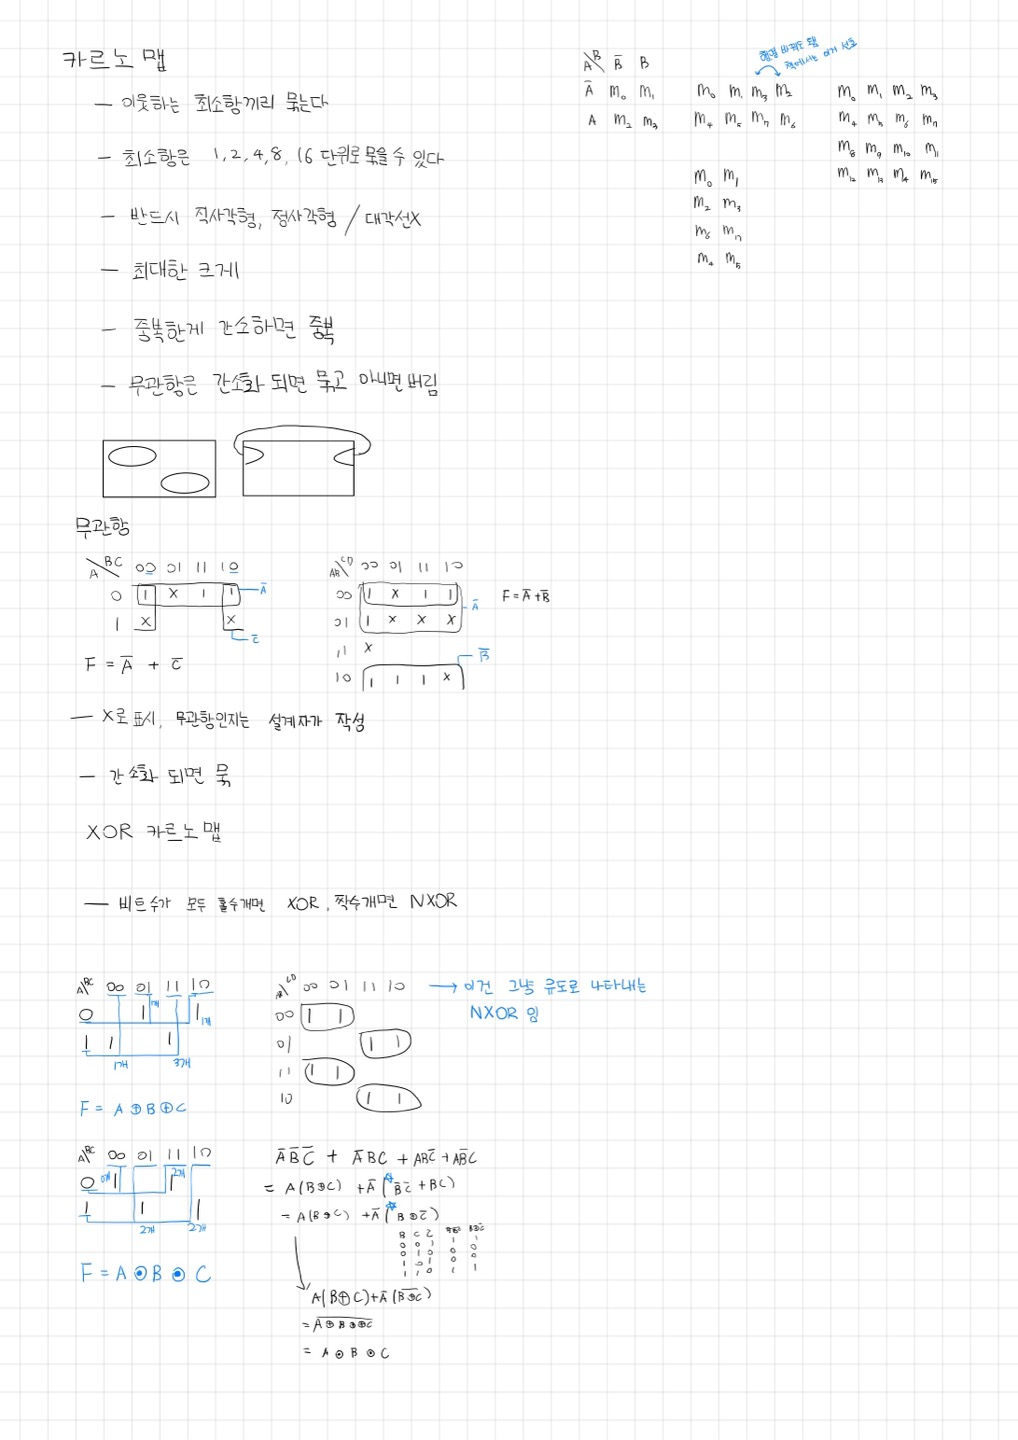 카르노 맵
— 이웃하는 최소항끼리 묶는다
— 최소항은 1, 2, 4, 8, 16 단위로 묶을 수 있다
— 반드시 직사각형, 정사각형 / 대각선X
— 최대한 크게
— 중복한게 간소하면 중복
— 무관항은 간소화 되면 묶고 아니면 버림
A\B B̅ B
A̅ m₀ m₁
A m₂ m₃
행열 바꿔도 됨
책에서는 이거 선호
m₀ m₁ m₃ m₂
m₄ m₅ m₇ m₆
m₀ m₁
m₂ m₃
m₆ m₇
m₄ m₅
m₀ m₁ m₂ m₃
m₄ m₅ m₆ m₇
m₈ m₉ m₁₀ m₁₁
m₁₂ m₁₃ m₁₄ m₁₅
무관항
A\BC 00 01 11 10
0 1 x 1 1 A̅
1 x x C̅
F = A̅ + C̅
AB\CD 00 01 11 10
00 1 x 1 1
01 1 x x x A̅
11 x
10 1 1 1 x B̅
F = A̅+B̅
— X로 표시, 무관항인지는 설계자가 작성
— 간소화 되면 묶
XOR 카르노 맵
— 비트수가 모두 홀수개면 XOR, 짝수개면 NXOR
A\BC 00 01 11 10
0 1 1 1개 1개
1 1 1
1개 3개
F = A⊕B⊕C
AB\CD 00 01 11 10
00 1 1
01 1 1
11 1 1
10 1 1
→ 이건 그냥 유도로 나타내는
NXOR 임
A\BC 00 01 11 10
0 0개 1 1 2개
1 1 1
2개 2개
F = A⊙B⊙C
A̅B̅C̅ + A̅BC + ABC̅ + AB̅C
= A(B⊕C) + A̅(B̅C̅ + BC)
= A(B⊕C) + A̅(B⊕C̅)
B C C̅ B⊙C B⊕C̅
0 0 1 1 1
0 1 0 0 0
1 0 1 0 0
1 1 0 1 1
A(B⊕C)+A̅(B⊕C)̅
= A⊕B⊕C̅
= A⊙B⊙C